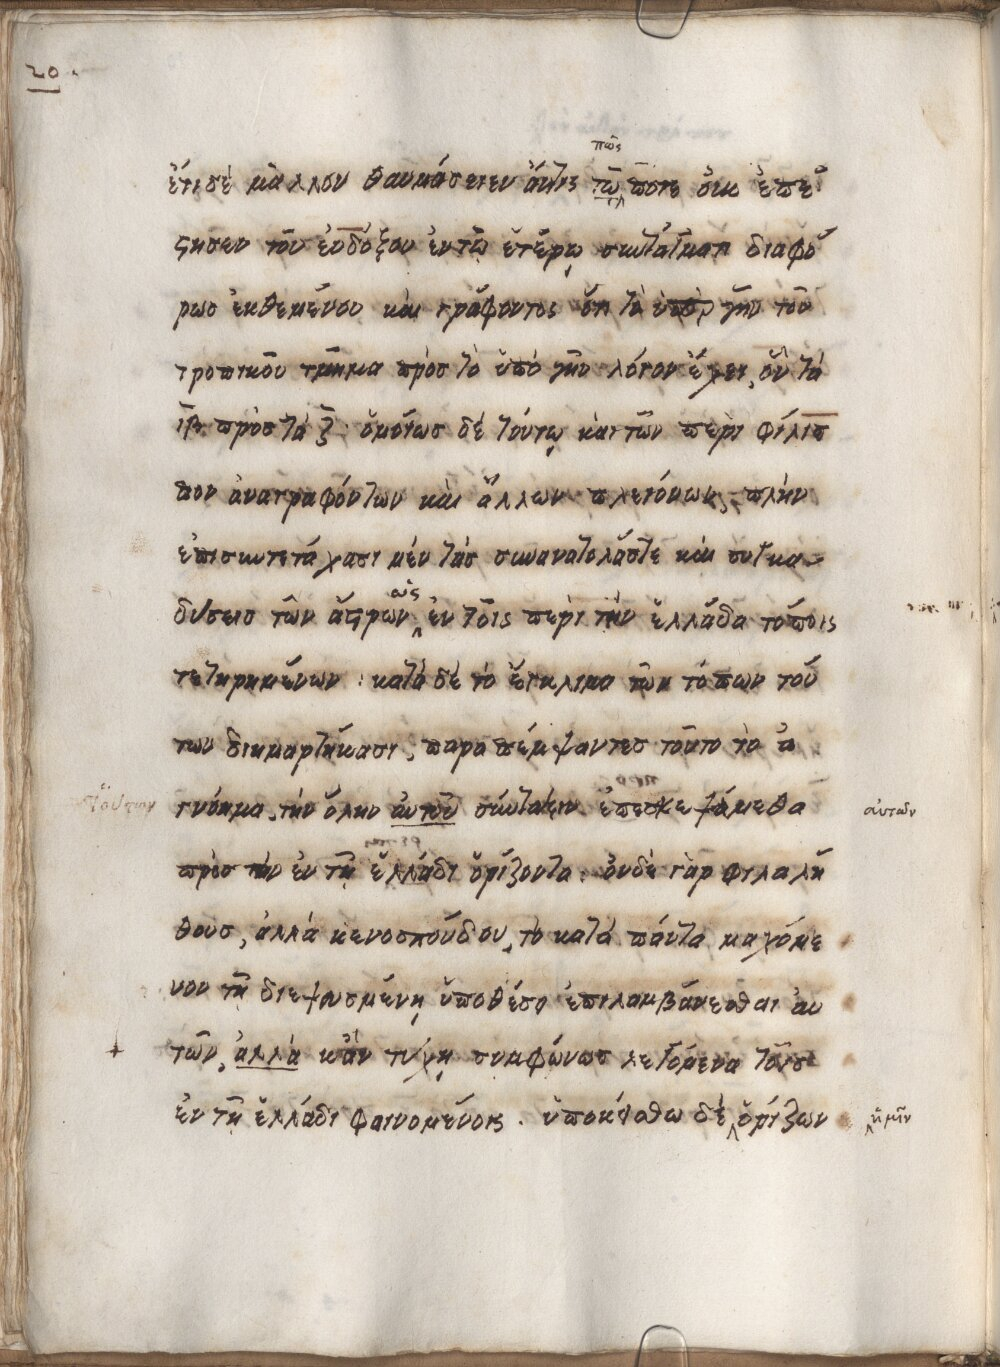 20.
πῶς
ἔτι δὲ μᾶλλον θαυμάσειεν ἄν τις πῶ ποτε οὐκ ἐπέ
στησεν τοῦ ἐυδόξου ἐν τῶ ἑτέρῳ συντάγματι διαφό
ρως ἐκθεμένου καὶ γράφοντος ὅτι τὰ ὑπὲρ γῆν τοῦ
τροπικοῦ τμῆμα πρὸς τὸ ὑπὸ γῆν λόγον ἔχει, ὃν τὰ
ιβ πρὸς τὰ ζ : ὁμοίως δὲ τούτῳ καὶ τῶν περὶ φίλιπ
πον ἀναγραφόντων καὶ ἄλλων πλειόνων, πλὴν
ἐπισυντετάχασι μὲν τὰς συνανατολάς τε καὶ συγκα
ὡς
δύσεις τῶν ἄστρων ἐν τοῖς περὶ τὴν ἑλλάδα τόποις
τετηρημένων : κατὰ δὲ τὸ ἔγκλιμα τῶν τόπων τού
των διημαρτήκασι, παραπέμψαντες τοῦτο τὸ ἀ
γνόημα, τὴν ὅλην ἀυτοῦ σύνταξιν ἐπεσκεψάμεθα
αὐτῶν
πρὸς τὸν ἐν τῆ ἑλλάδι ὁρίζοντα : ὀυδὲ γὰρ φιλαλή
θους, ἀλλὰ κενοσπούδου, τὸ κατὰ πάντα μαχόμε
νον τῆ διεψευσμένῃ ὑποθέσει ἐπιλαμβάνεσθαι ἀυ
τῶν, ἀλλὰ κἂν τύχῃ συμφώνως λεγόμενα τοῖς
ἐν τῆ ἑλλάδι φαινομένοις . ὑποκείσθω δὲ ὁρίζων
ἡμῖν